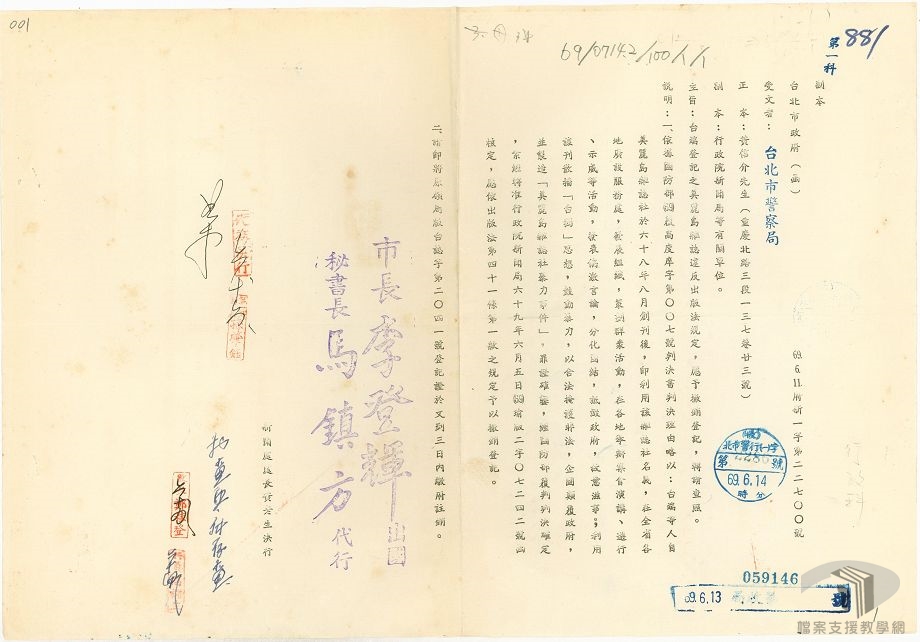 001
881
第一科
69/07142/100
副本
台北市政府（函）
69.6.11.府新一字第二二七〇〇號
受文者：台北市警察局
正　本：黃信介先生（重慶北路三段一三七巷廿三號）
副　本：行政院新聞局等有關單位。
主旨：台端登記之美麗島雜誌違反出版法規定，應予撤銷登記，轉請查照。
說明：一、依據國防部69
判決書判決理由略以：台端等人自
美麗島雜誌社於六十八年八月創刊後，即利用該雜誌社名義，在全省各
地廣設服務處，發展組織，策劃群眾活動，在各地舉辦集會演講、遊行
、示威等活動，發表偏激言論，分化團結，詆譭政府，故意滋事；利用
該刊散播「台獨」思想，鼓動暴力，以合法掩護非法，企圖顛覆政府，
並製造「美麗島雜誌社暴力事件」，罪證確鑿，經國防部覆判判決確定
，案經轉准行政院新聞局六十九年六月五日69瑜版二字〇七二四二號函
核定，應依出版法第四十一條第一款之規定予以撤銷登記。
二、請即將原領局版台誌字第二〇四一號登記證於文到三日內繳府註銷。
市長李登輝出國
秘書長馬鎮方代行
新聞處處長
決行
69.6.14
時　分
059146
69.6.13
號
檔案支援教學網